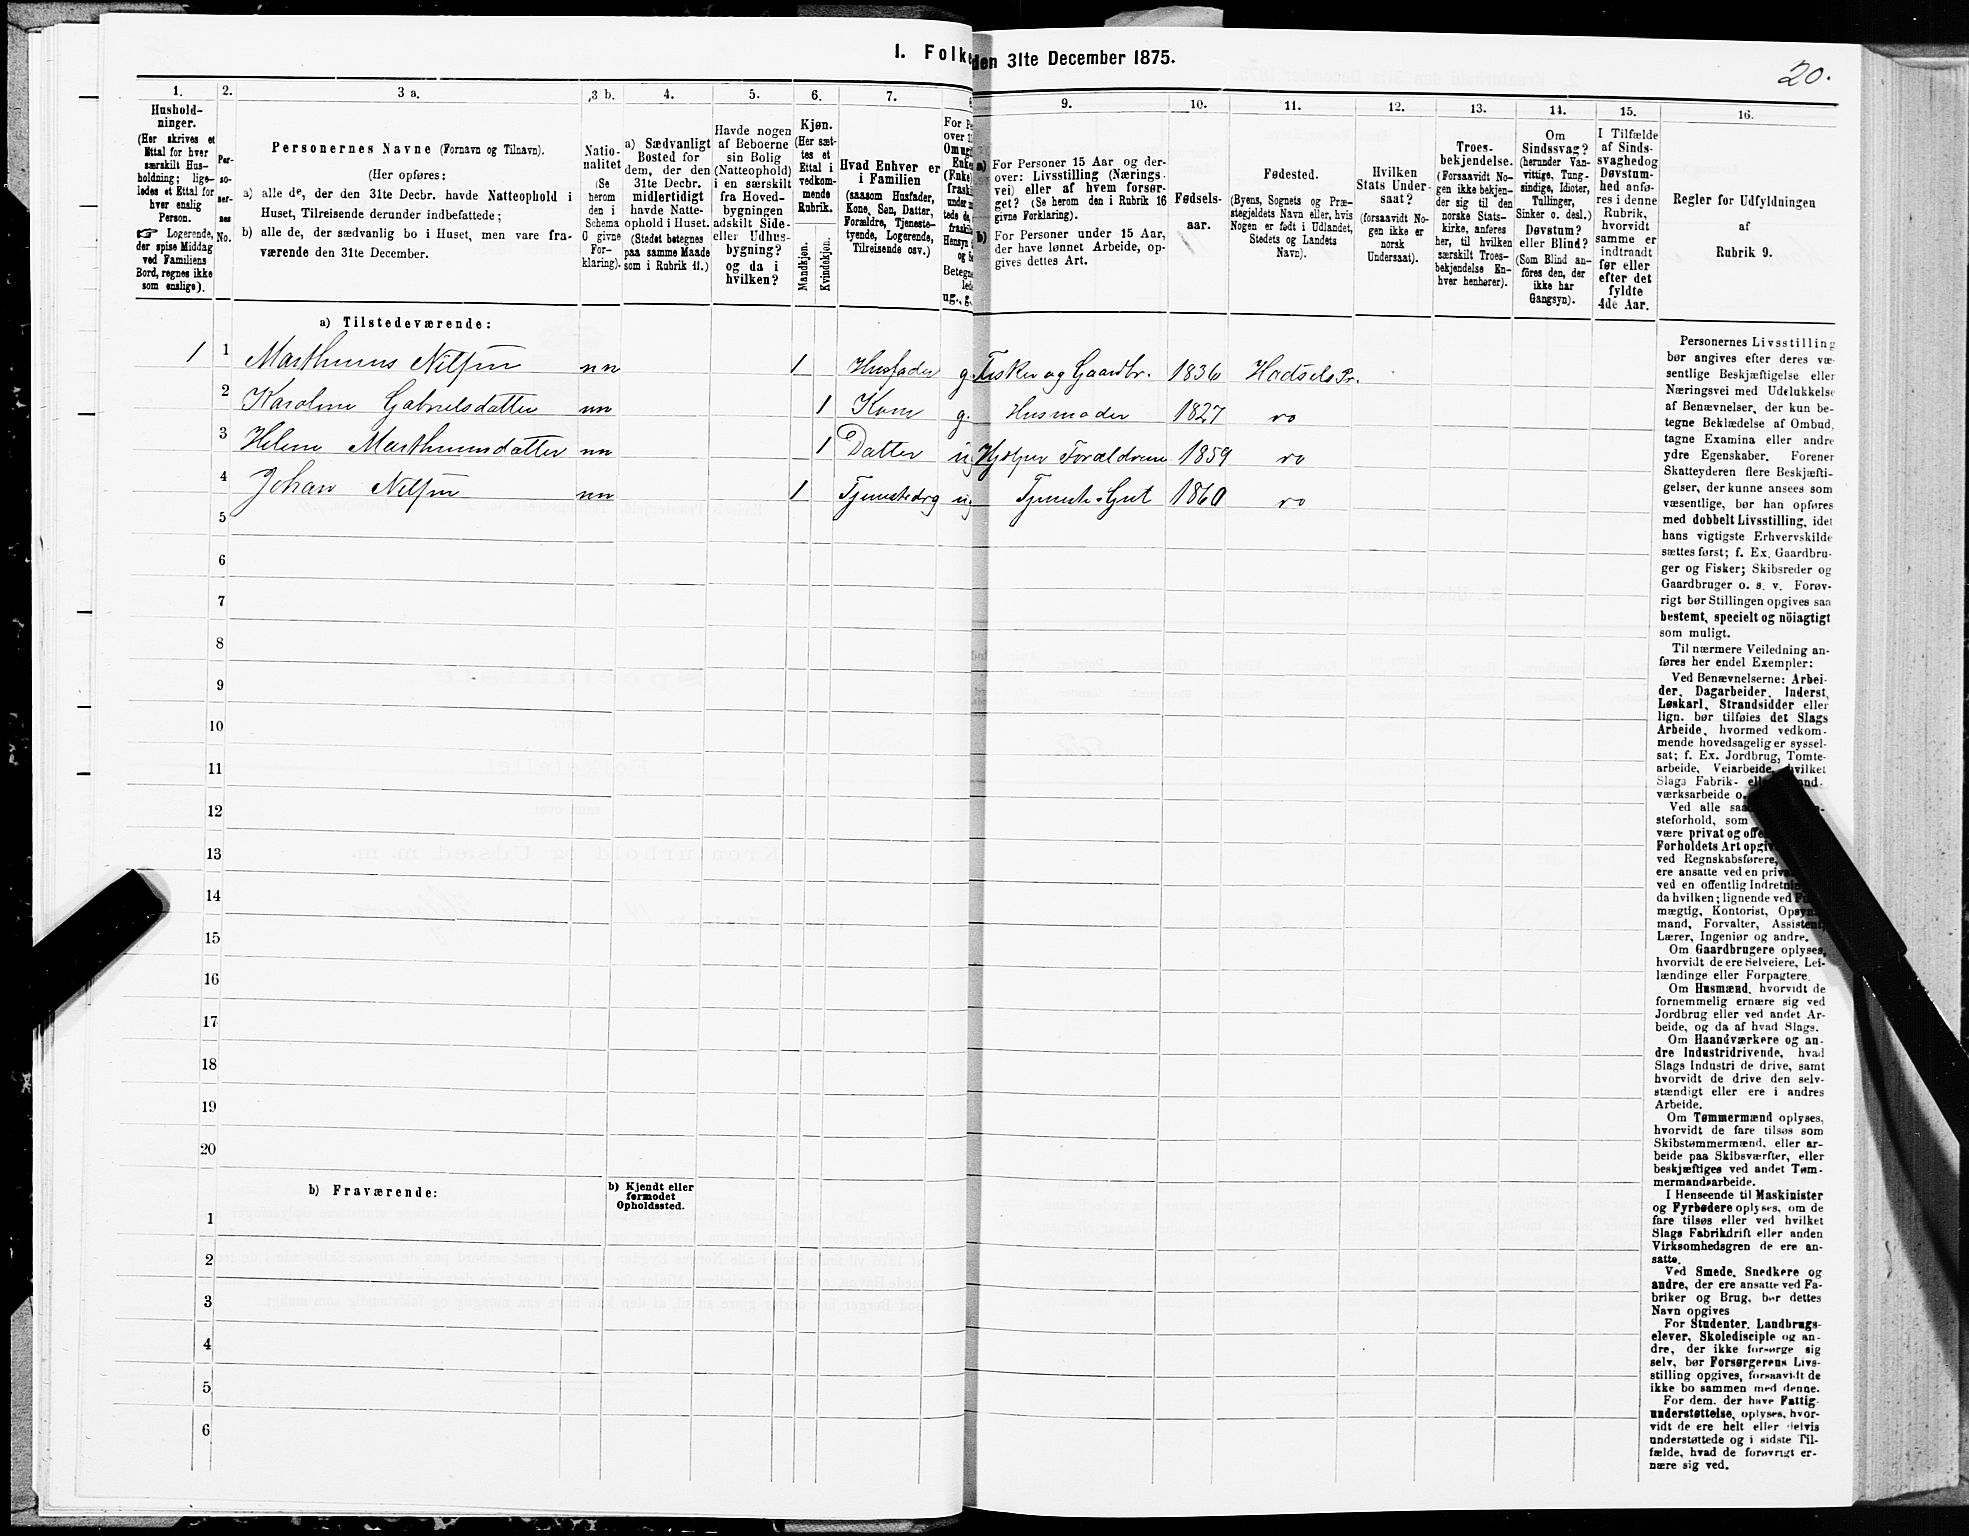 I. Folke den 31te December 1875.
20.
1. 2. 3 a. 3 b. 4. 5. 6. 7. 9. 10. 11. 12. 13. 14. 15. 16.
Hushold-
ninger.
(Her skrives et
Ettal for hver
særskilt Hus-
holdning; lige-
ledes et Ettal for
hver enslig
Person.
☞ Logerende,
der spise Middag
ved Familiens
Bord, regnes ikke
som enslige).
Per-
so-
ner-
nes
No.
Personernes Navne (Fornavn og Tilnavn).
(Her opføres:
a) alle de, der den 31te Decbr. havde Natteophold i
Huset, Tilreisende derunder indbefattede;
b) alle de, der sædvanlig bo i Huset, men vare fra-
værende den 31te December.
Natio-
nalitet
(Se
herom
den i
Schema
0 givne
For-
klaring).
a) Sædvanligt
Bosted for
dem, der den
31te Decbr.
midlertidigt
havde Natte-
ophold i Huset.
(Stedet betegnes
paa samme Maade
som i Rubrik 11.)
Havde nogen
af Beboerne
sin Bolig
(Natteophold)
i en særskilt
fra Hoved-
bygningen
adskilt Side-
eller Udhus-
bygning?
og da i
hvilken?
Kjøn.
(Her sæt-
tes et
Ettal i
vedkom-
mende
Rubrik.
Mandkjøn.
Kvindekjøn.
Hvad Enhver er
i Familien
(saasom Husfader,
Kone, Søn, Datter,
Forældre, Tjeneste-
tyende, Logerende,
Tilreisende osv.)
For Pe
over 1
Omugi
Enke
(Enke
fraski
under
tede de,
fraski
Hensyn
og Se
Betegne
lede
ug., g.
a) For Personer 15 Aar og der-
over: Livsstilling (Nærings-
vei) eller af hvem forsør-
get? (Se herom den i Rubrik 16
givne Forklaring).
b) For Personer under 15 Aar,
der have lønnet Arbeide, op-
gives dettes Art.
Fødsels-
aar.
Fødested.
(Byens, Sognets og Præ-
stegjeldets Navn eller, hvis
Nogen er født i Udlandet,
Stedets og Landets
Navn).
Hvilken
Stats Under-
saat?
(forsaavidt No-
gen ikke er
norsk
Undersaat).
Troes-
bekjendelse.
(Forsaavidt No-
gen ikke bekjen-
der sig til den
norske Stats-
kirke, anføres
her, til hvilken
særskilt Troes-
bekjendelse En-
hver henhører).
Om
Sindssvag?
(herunder Van-
vittige, Tung-
sindige, Idioter,
Tullinger,
Sinker o. desl.)
Døvstum?
eller Blind?
(Som Blind an-
føres den, der
ikke har
Gangsyn).
I Tilfælde
af Sinds-
svaghedog
Døvstum-
hed anfø-
res i denne
Rubrik,
hvorvidt
samme er
indtraadt
før eller
efter det
fyldte
4de Aar.
Regler for Udfyldningen
af
Rubrik 9.
a) Tilstedeværende:
1 1 Marthinus Nilsen nn 1 Husfader g. Fisker og Gaardbr. 1836 Hadsels Pr.
2 Karoline Gabrielsdatter nn 1 Kone g. Husmoder 1827 ro
3 Helene Marthinusdatter nn 1 Datter ug Hjælper Forældrene 1859 ro
4 Johan Nilsen nn 1 Tjenestedrg ug Tjeneste-Gut 1860 ro
5
6
7
8
9
10
11
12
13
14
15
16
17
18
19
20
b) Fraværende:
b) Kjendt eller
formodet
Opholdssted.
1
2
3
4
5
6
Personernes Livsstilling
bør angives efter deres væ-
sentlige Beskjæftigelse eller
Næringsvei med Udelukkelse
af Benævnelser, der kun be-
tegne Beklædelse af Ombud,
tagne Examina eller andre
ydre Egenskaber. Forener
Skatteyderen flere Beskjæfti-
gelser, der kunne ansees som
væsentlige, bør han opføres
med dobbelt Livsstilling, idet
hans vigtigste Erhvervskilde
sættes først; f. Ex. Gaardbru-
ger og Fisker; Skibsreder og
Gaardbruger o. s. v. Forøv-
rigt bør Stillingen opgives saa
bestemt, specielt og nöiagtigt
som muligt.
Til nærmere Veiledning an-
føres her endel Exempler:
Ved Benævnelserne: Arbei-
der, Dagarbeider, Inderst,
Løskarl, Strandsidder eller
lign. bør tilføies det Slags
Arbeide, hvormed vedkom-
mende hovedsagelig er syssel-
sat; f. Ex. Jordbrug, Tomte-
arbeide, Veiarbeide, hvilket
Slags Fabrik- ell and-
værksarbeide o.
Ved alle saa
steforhold, som
være privat og offe
Forholdets Art opgiv
ved Regnskabsførere,
ere ansatte ved en priva
ved en offentlig Indretnin
da hvilken; lignende ved F
mægtig, Kontorist, Opsyn
mand, Forvalter, Assistent,
Lærer, Ingeniør og andre.
Om Gaardbrugere oplyses,
hvorvidt de ere Selveiere, Lei-
lændinge eller Forpagtere.
Om Husmænd, hvorvidt de
fornemmelig ernære sig ved
Jordbrug eller ved andet Ar-
beide, og da af hvad Slags.
Om Haandværkere og an-
dre Industridrivende, hvad
Slags Industri de drive, samt
hvorvidt de drive den selv-
stændigt eller ere i andres
Arbeide.
Om Tømmermænd oplyses,
hvorvidt de fare tilsøs som
Skibstømmermænd, eller ar-
beide paa Skibsværfter, eller
beskjæftiges ved andet Tøm-
mermandsarbeide.
I Henseende til Maskinister
og Fyrbødere oplyses, om de
fare tilsøs eller ved hvilket
Slags Fabrikdrift eller anden
Virksomhedsgren de ere an-
satte.
Ved Smede, Snedkere og
andre, der ere ansatte ved Fa-
briker og Brug, bør dettes
Navn opgives
For Studenter, Landbrugs-
elever, Skoledisciple og an-
dre, der ikke forsørge sig
selv, bør Forsørgerens Livs-
stilling opgives, forsaavidt de
ikke bo sammen med denne.
For dem, der have Fattig-
understøttelse, oplyses, hvor-
vidt de ere helt eller delvis
understøttede og i sidste Til-
fælde, hvad de forøvrigt er-
nære sig ved.